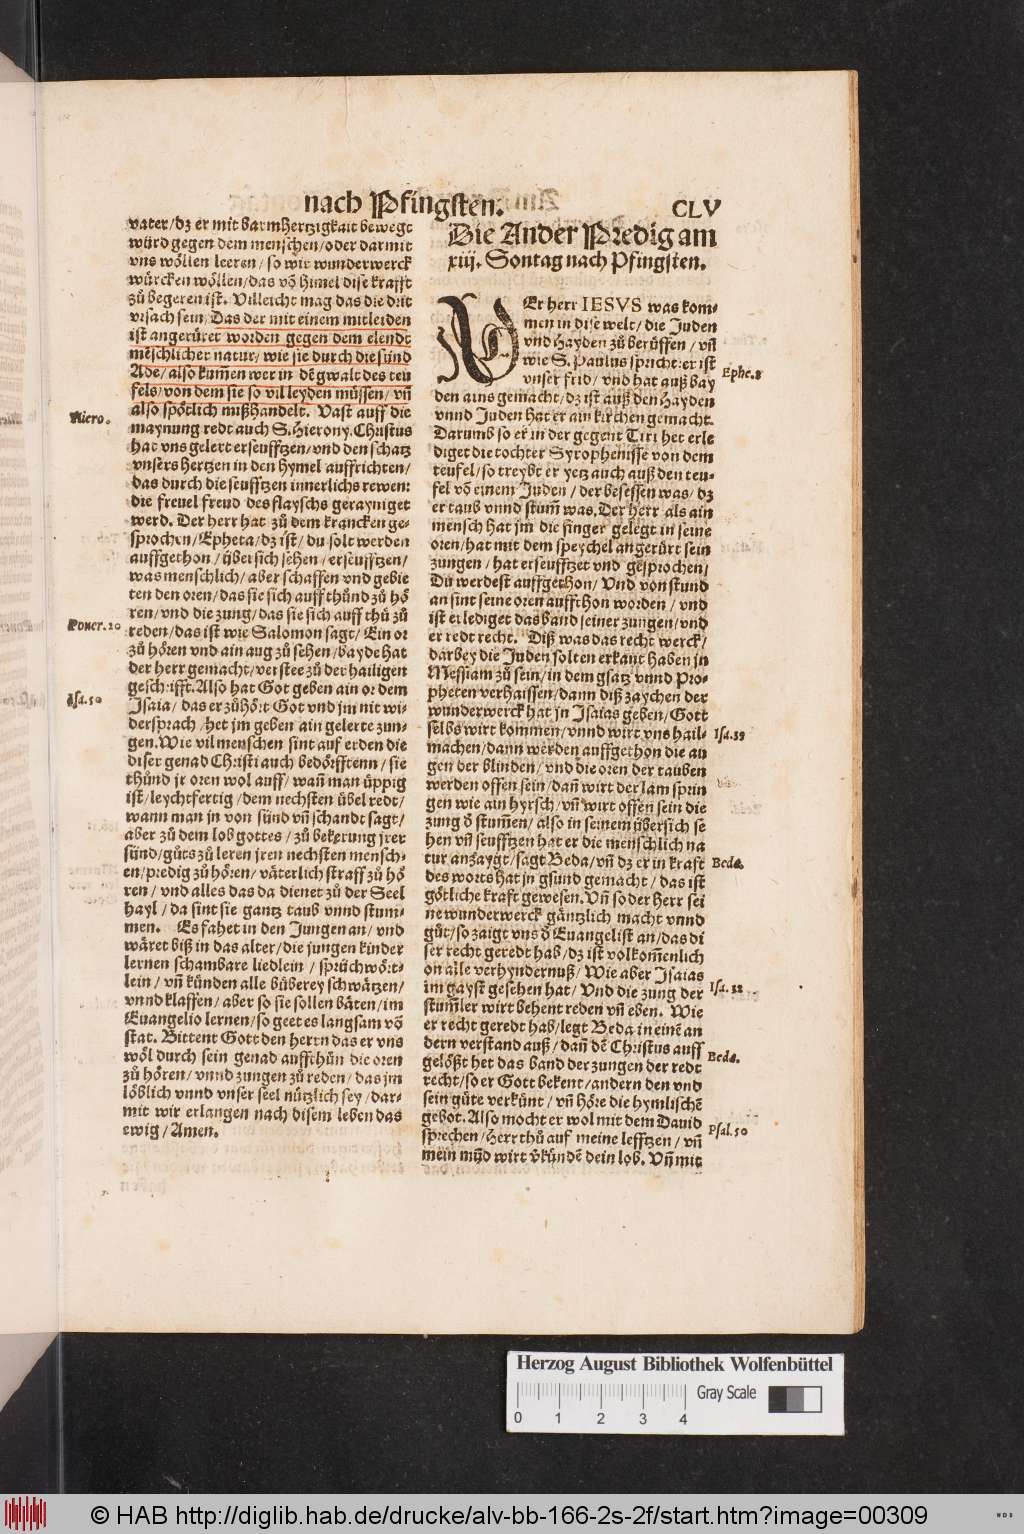 nach Pfingsten.
CLV
vater/dz er mit barmhertzigkait bewegt
würd gegen dem menschen/oder darmit
vns wöllen leeren/so wir wunderwerck
würcken wöllen/das võ himel dise krafft
zů begeren ist. Villeicht mag das die drit
vrsach sein, Das der mit einem mitleiden
ist angerüret worden gegen dem elendt
mẽschlicher natur/wie sie durch die sünd
Ade/also kum̃en wer in dẽ gwalt des teu
fels/von dem sie so vil leyden müssen/vñ
also spötlich mißhandelt. Vast auff die
Hiero.
maynung redt auch S. Hierony. Christus
hat vns gelert erseufftzen/vnd den schatz
vnsers hertzen in den hymel auffrichten/
das durch die seufftzen innerlichs rewen:
die freuel freud des flayschs gerayniget
werd. Der herr hat zů dem krancken ge-
sprochen/Epheta/dz ist/du solt werden
auffgethon/übersich sehen/erseufftzen/
was menschlich/aber schaffen vnd gebie
ten den oren/das sie sich auff thůnd zů hö
ren/vnd die zung/das sie sich auff thů zů
Prouer. 20
reden/das ist wie Salomon sagt/Ein or
zů hören vnd ain aug zů sehen/bayde hat
der herr gemacht/verstee zů der hailigen
geschrifft. Also hat Got geben ain or dem
Isa. 50
Isaia/das er zůhört Got vnd jm nit wi-
dersprach/het jm geben ain gelerte zun-
gen. Wie vil menschen sint auf erden die
diser genad Christi auch bedörfftenn/sie
thůnd jr oren wol auff/wañ man üppig
ist/leychtfertig/dem nechsten übel redt/
wann man jn von sünd vñ schandt sagt/
aber zů dem lob gottes/zů bekerung jrer
sünd/gůts zů leren jren nechsten mensch-
en/predig zů hören/väterlich straff zů hö
ren/vnd alles das da dienet zů der Seel
hayl/da sint sie gantz taub vnnd stum-
men. Es fahet in den Jungen an/vnd
wäret biß in das alter/die jungen kinder
lernen schambare liedlein/sprüchwört-
lein/vñ künden alle bůberey schwätzen/
vnnd klaffen/aber so sie sollen bäten/im
Euangelio lernen/so geet es langsam võ
stat. Bittent Gott den herrn das er vns
wöl durch sein genad auffthůn die oren
zů hören/vnnd zungen zů reden/das jm
löblich vnnd vnser seel nützlich sey/dar-
mit wir erlangen nach disem leben das
ewig/Amen.
Die Ander Predig am
xiij. Sontag nach Pfingsten.
DEr herr IESVS was kom-
men in dise welt/die Juden
vnd Hayden zů berůffen/vñ
wie S. Paulus spricht: er ist
Ephe. 2
vnser frid/vnd hat auß bay
den ains gemacht/dz ist auß den Hayden
vnnd Juden hat er ain kirchen gemacht.
Darumb so er in der gegent Tiri het erle
diget die tochter Syrophenisse von dem
teufel/so treybt er yetz auch auß den teu-
fel võ einem Juden/der besessen was/dz
er taub vnnd stum̃ was. Der herr als ain
mensch hat jm die finger gelegt in seine
oren/hat mit dem speychel angerürt sein
zungen/hat erseufftzet vnd gesprochen/
Du werdest auffgethon/Vnd von stund
an sint seine oren auffthon worden/vnd
ist erlediget das band seiner zungen/vnd
er redt recht. Diß was das recht werck/
darbey die Juden solten erkant haben jn
Messiam zů sein/in dem gsatz vnnd Pro-
pheten verhaissen/dann diß zaychen der
wunderwerck hat jn Isaias geben/Gott
selbs wirt kommen/vnnd wirt vns hail-
Isa. 35
machen/dann werden auffgethon die au
gen der blinden/vnd die oren der tauben
werden offen sein/dañ wirt der lam sprin
gen wie ain hyrsch/vñ wirt offen sein die
zung d̃ stum̃en/also in seinem übersich se
hen vñ seufftzen hat er die menschlich na
tur anzaygt/sagt Beda/vñ dz er in kraft
Beda.
des worts hat jn gsund gemacht/das ist
götliche kraft gewesen. Vñ so der herr sei
ne wunderwerck gäntzlich macht vnnd
gůt/so zaigt vns d̃ Euangelist an/das di
ser recht geredt hab/dz ist volkom̃enlich
on alle verhyndernuß/Wie aber Isaias
im gayst gesehen hat/Vnd die zung der
Isa. 32
stum̃ler wirt behent reden vñ eben. Wie
er recht geredt hab/legt Beda in einẽ an
dern verstand auß/dañ dẽ Christus auff
Beda.
gelößt het das band der zungen der redt
recht/so er Gott bekent/andern den vnd
sein güte verkünt/vñ höre die hymlischẽ
gebot. Also mocht er wol mit dem Dauid
Psal. 50
sprechen/Herr thů auf meine lefftzen/vñ
mein mũd wirt v̄kündẽ dein lob. Vñ mit
Herzog August Bibliothek Wolfenbüttel
Gray Scale
0 1 2 3 4
© HAB http://diglib.hab.de/drucke/alv-bb-166-2s-2f/start.htm?image=00309